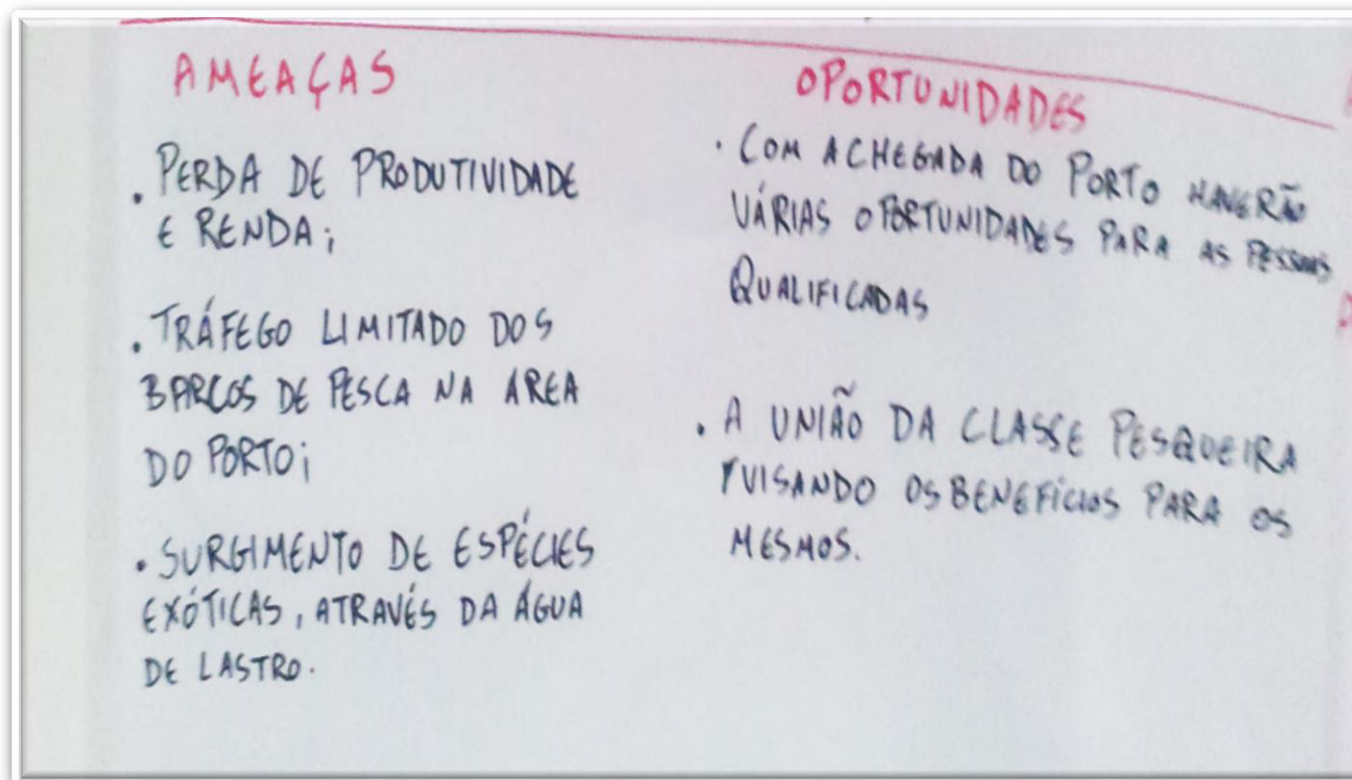 AMEAÇAS
. PERDA DE PRODUTIVIDADE
E RENDA;
. TRÁFEGO LIMITADO DOS
BARCOS DE PESCA NA AREA
DO PORTO;
. SURGIMENTO DE ESPÉCIES
EXÓTICAS, ATRAVÉS DA ÁGUA
DE LASTRO.
OPORTUNIDADES
. COM A CHEGADA DO PORTO HAVERÃO
VÁRIAS OPORTUNIDADES PARA AS PESSOAS
QUALIFICADAS
. A UNIÃO DA CLASSE PESQUEIRA
VISANDO OS BENEFÍCIOS PARA OS
MESMOS.